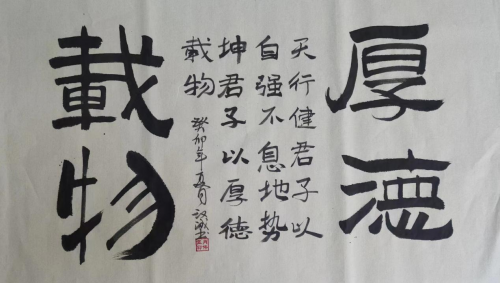 厚德
天行健君子以
自强不息地势
坤君子以厚德
載物
癸卯年
載物